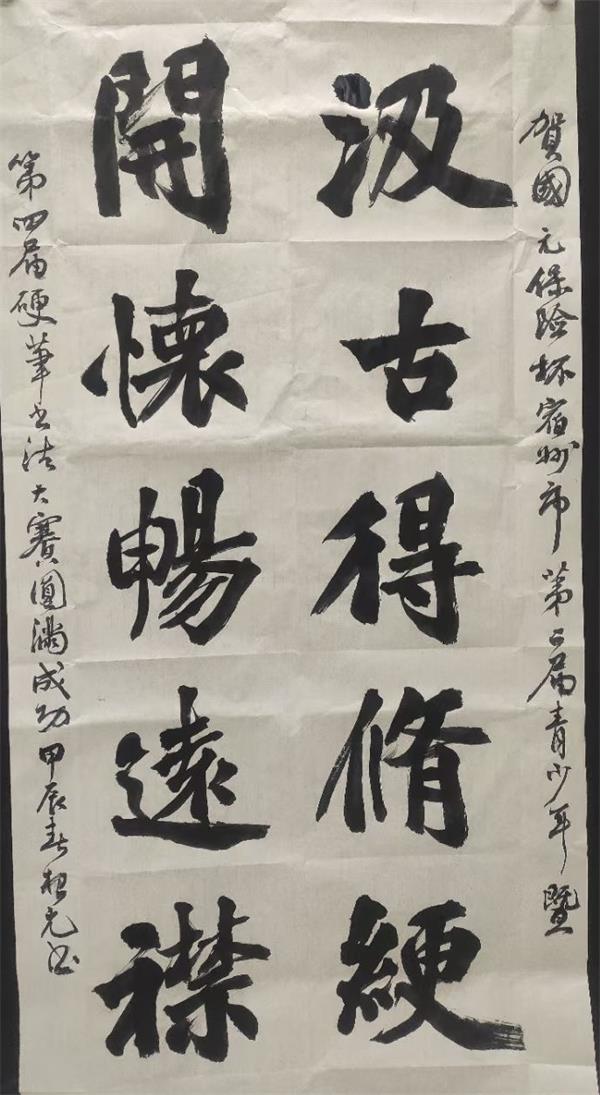 賀國元保险杯宿州市第二届青少年暨
汲古得脩綆
開懷暢遠襟
第四届硬筆书法大賽圓满成功甲辰春 光书